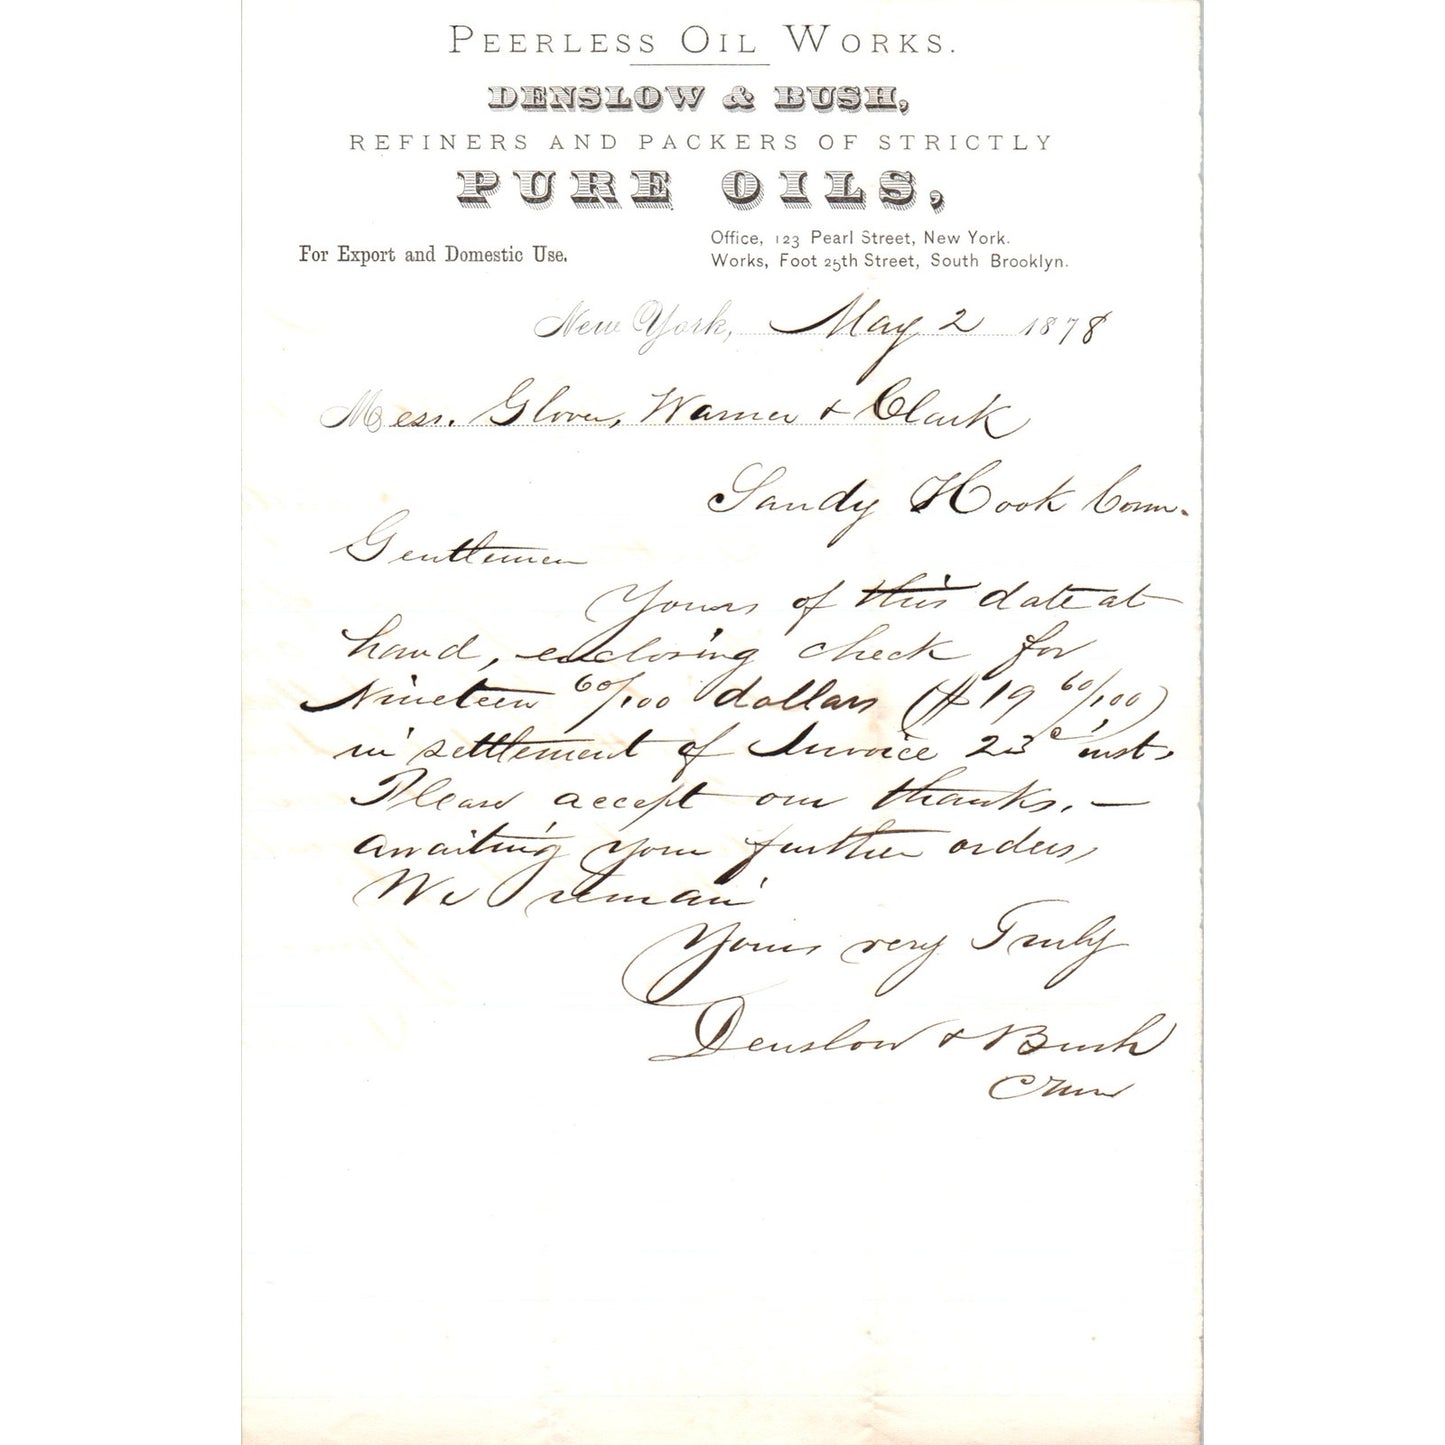 PEERLESS OIL WORKS.
DENSLOW & BUSH,
REFINERS AND PACKERS OF STRICTLY
PURE OILS,
For Export and Domestic Use.
Office, 123 Pearl Street, New York.
Works, Foot 25th Street, South Brooklyn.
New York, May 2 1878
Mess. Glover, Warner & Clark
Sandy Hook Conn.
Gentlemen
Yours of this date at
hand, enclosing check for
Nineteen 60/100 dollars ($19 60/100)
in settlement of Invoice 23 inst,
Please accept our thanks. —
awaiting your further orders,
We remain
Yours very Truly
Denslow & Bush